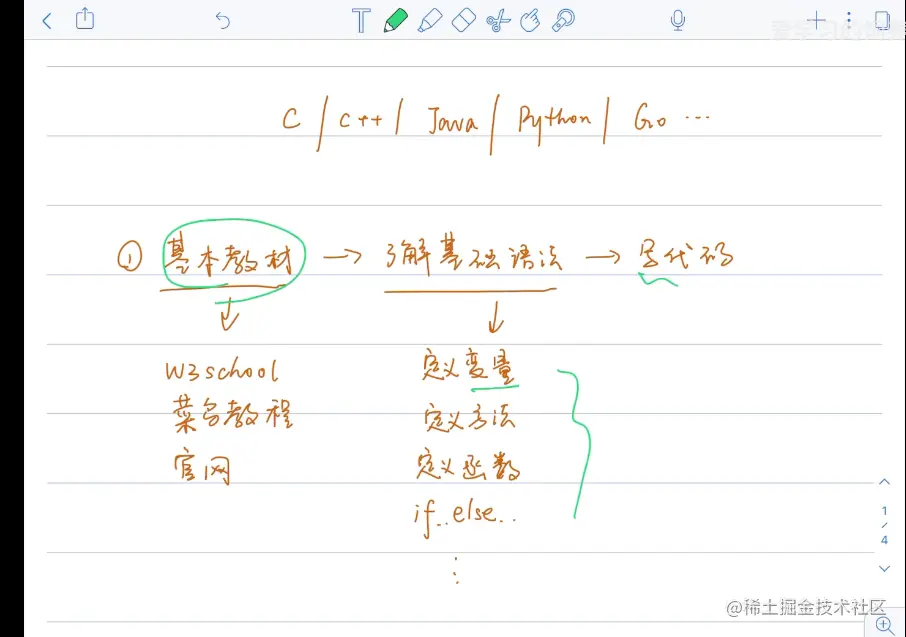 C / C++ / Java / Python / Go ...
① 基本教材 → 了解基础语法 → 写代码
W3school 定义变量
菜鸟教程 定义方法
官网 定义函数
if..else..
1
/
4
@稀土掘金技术社区